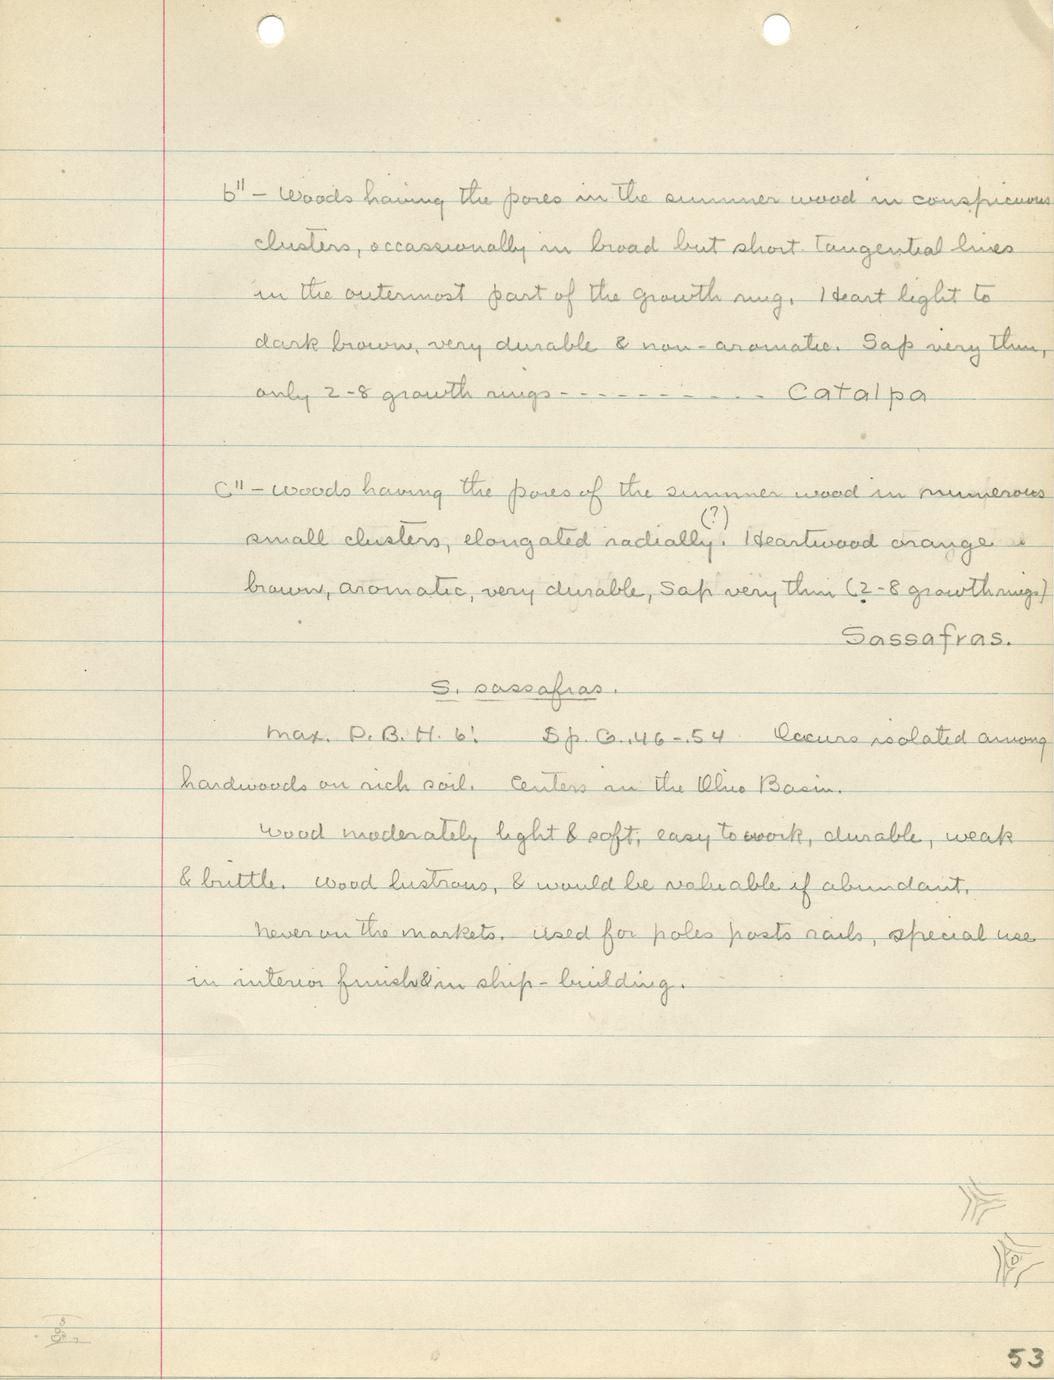 b" - Woods having the pores in the summer wood in conspicuous
clusters, occassionally in broad but short tangential lines
in the outermost part of the growth ring. Heart light to
dark brown, very durable & non-aromatic. Sap very thin,
only 2-8 growth rings - - - - - - - - - - Catalpa
C" - Woods having the pores of the summer wood in numerous
(?)
small clusters, elongated radially. Heartwood orange
brown, aromatic, very durable, Sap very thin (2-8 growth rings)
Sassafras.
S. sassafras.
Max. D.B.H. 6'. Sp. G. .46-.54 Occurs isolated among
hardwoods on rich soil. Centers in the Ohio Basin.
Wood moderately light & soft, easy to work, durable, weak
& brittle. Wood lustrous, & would be valuable if abundant.
Never on the markets. Used for poles posts rails, special use
in interior finish & in ship-building.
53